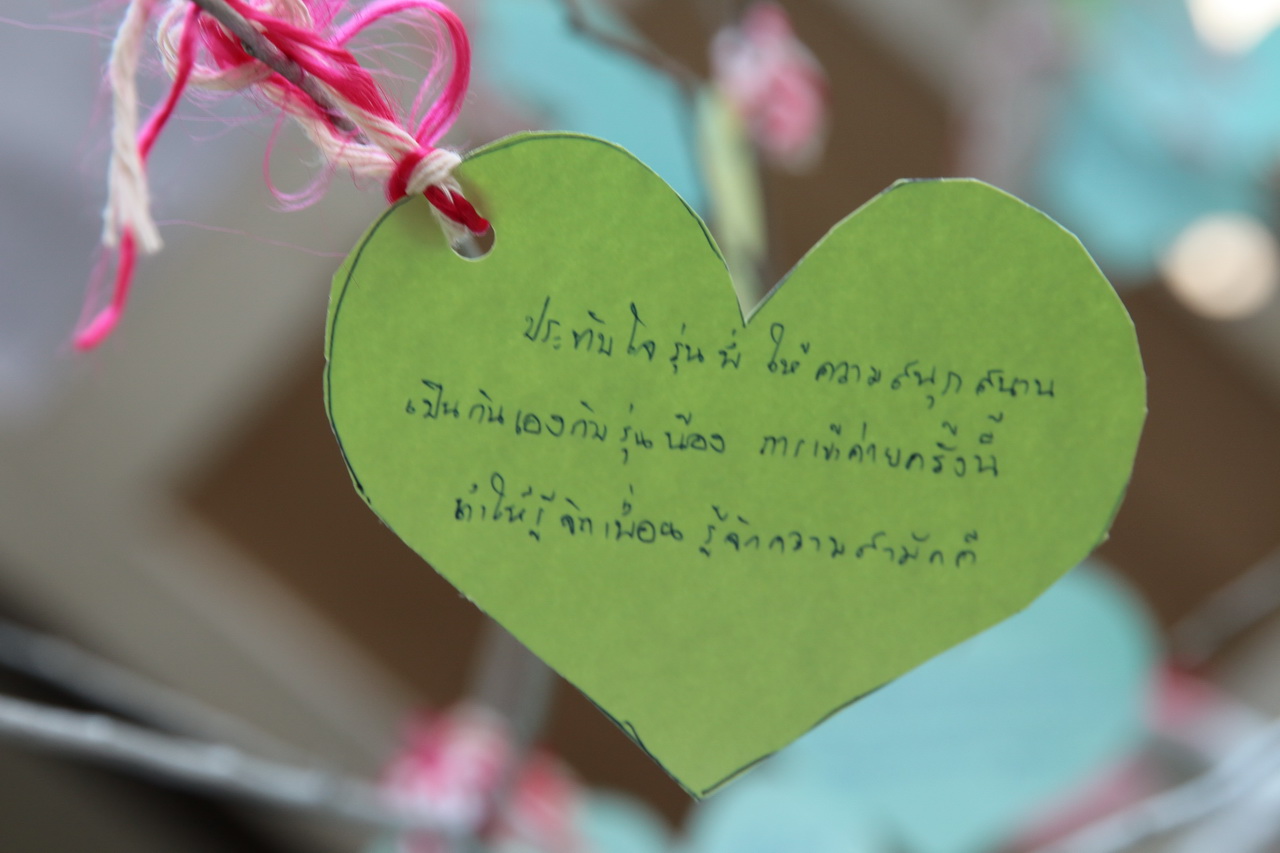 ประทับใจรุ่นพี่ ให้ความสนุกสนาน
เป็นกันเองกับรุ่นน้อง การเข้าค่ายครั้งนี้
ทำให้รู้จักเพื่อน รู้จักความสามัคคี